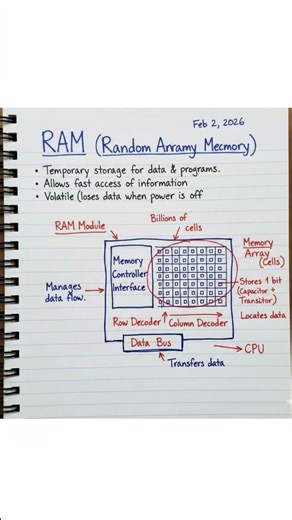 Feb 2, 2026
RAM (Random Anramy Mecmory)
• Temporary storage for data & programs.
• Allows fast access of information
• Volatile (loses data when power is off
RAM Module
Billions of
cells
Memory
Array
(Cells)
Memory
Controller
Interface
Manages
data flow.
Stores 1 bit
(Capacitor +
Transitor)
Row Decoder
Column Decoder
Locates data
Data Bus
CPU
Transfers data